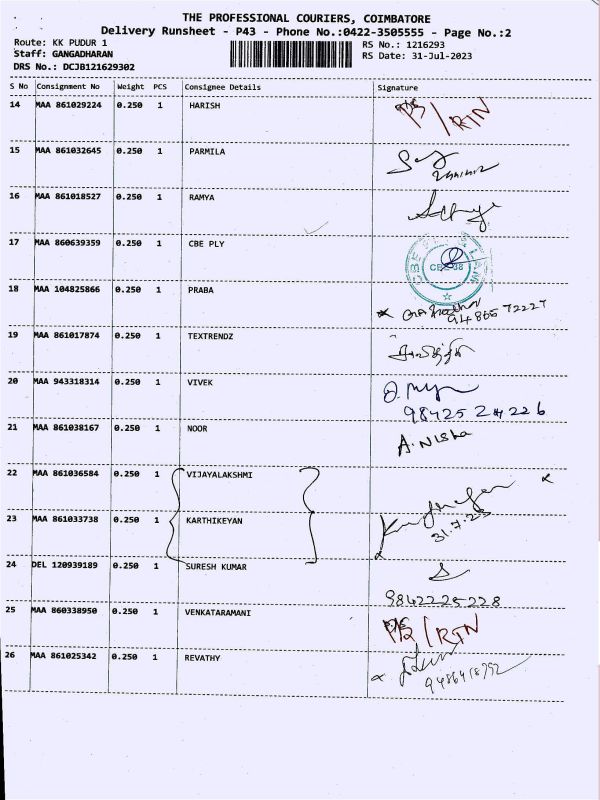 THE PROFESSIONAL COURIERS, COIMBATORE
Delivery Runsheet - P43 - Phone No.:0422-3505555 - Page No.:2
Route: KK PUDUR 1 RS No.: 1216293
Staff: GANGADHARAN RS Date: 31-Jul-2023
DRS No.: DCJB121629302
S No Consignment No Weight PCS Consignee Details Signature
14 MAA 861029224 0.250 1 HARISH /RTN
15 MAA 861032645 0.250 1 PARMILA
16 MAA 861018527 0.250 1 RAMYA
17 MAA 860639359 0.250 1 CBE PLY
18 MAA 104825866 0.250 1 PRABA
94865 72227
19 MAA 861017874 0.250 1 TEXTRENDZ
20 MAA 943318314 0.250 1 VIVEK
98425 24226
21 MAA 861038167 0.250 1 NOOR A. Nisha
22 MAA 861036584 0.250 1 VIJAYALAKSHMI
23 MAA 861033738 0.250 1 KARTHIKEYAN
31.7.23
24 DEL 120939189 0.250 1 SURESH KUMAR S
9842225228
25 MAA 860338950 0.250 1 VENKATARAMANI /RTN
26 MAA 861025342 0.250 1 REVATHY